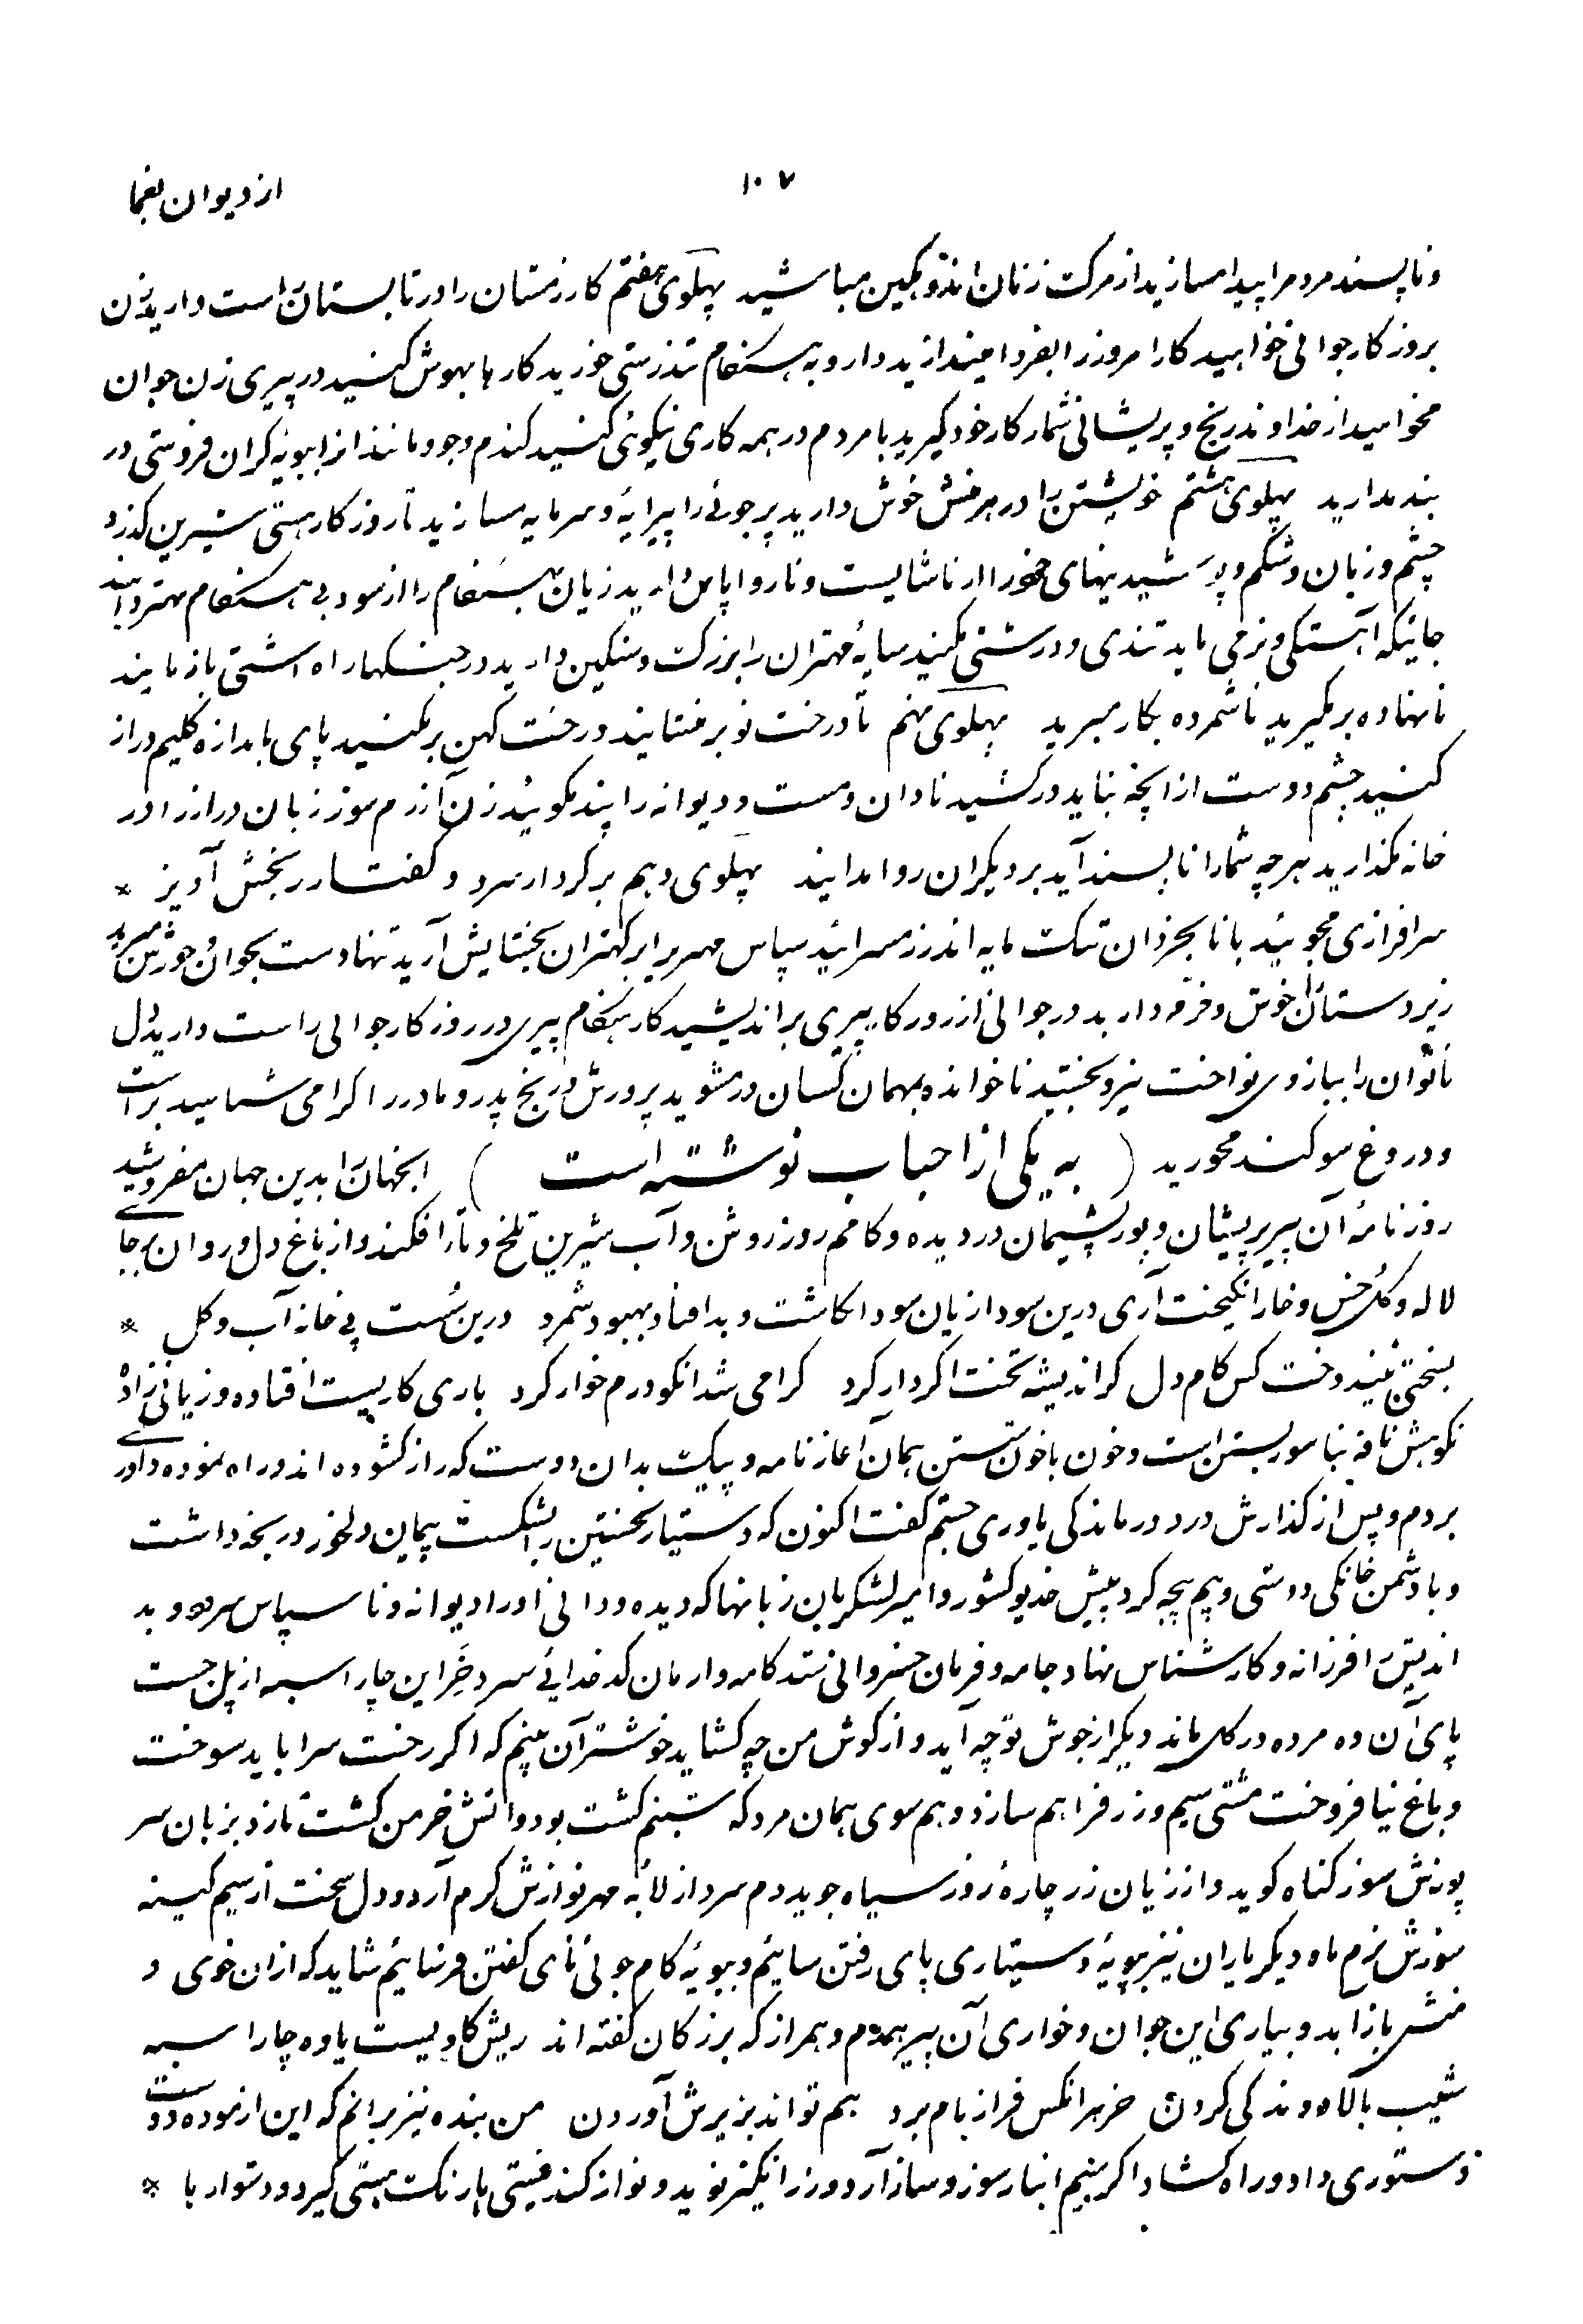 ۱۰۷
از دیوان یغما
و ناپسند مردم را پیدا مسازید از مرکت زنان اندوهکین مباشید پهلوی هفتم کار زمستان را در تابستان راست دارید زن
بروز کار جوانی خواهید کار امروز را بفردا میندازید دارو به هنکام تندرستی خورید کارها بهوش کنید در پیری زن جوان
مخواهید از خداوند رنج و پریشانی شمار کار خود کیرید با مردم در همه کاری نیکوئی کنید کندم و جو و مانند انرا ببویه کران فروشی در
بند مدارید پهلوی هشتم خویشتن را در هر منش خوش دارید پرجوئی را پیرایه و سرمایه مسازید تا روز کار هستی شیرین کذرد
چشم و زبان و شکم و پوشیدنیهای خود را از ناشایست و ناروا پاس دارید زیان بهنکام را از سود بی هنکام بهتر دانید
جائیکه آهستکی و نرمی باید تندی و درشتی مکنید سایهٔ مهتران را بزرکت و سنکین دارید در جنکها راه آشتی باز مایند
نانهاده بر مکیرید ناشمرده بکار مبرید پهلوی نهم تا درخت نو بر ننشانید درخت کهن بر مکنید پای باندازه کلیم دراز
کنید چشم و دست از انچه نباید در کشید نادان و مست و دیوانه را پند مکوئید زن آزرم سوز زبان دراز را در
خانه مکذارید هر چه شما را ناپسند آید بر دیکران روا مدانید پهلوی دهم بر کردار سرد و کفتار رنجش آویز *
سرافرازی مجوئید با نابخردان تنکت مایه اندرز مسرائید سپاس مهر برابر کهتران بخشایش آرید تنها دست بخوان خورش مبرید
زیردستان را خوش و خرم دارید در جوانی از روز کار پیری بر اندیشید کار هنکام پیری در روز کار جوانی راست دارید دل
ناتوان را ببازوی نواخت نیرو بخشید ناخوانده بمهمان کسان در مشوید پرورش و رنج پدر و مادر را کرامی شناسید براست
و دروغ سوکند مخورید ( به یکی از احباب نوشته است ) انجهان را بدین جهان مفروشید
روزنامهٔ آن پیر پریشان و پور پشیمان در دیده و کامم روز روشن و آب شیرین تلخ و تار افکند و از باغ دل و روان بجای
لاله و کل خس و خار انکیخت آری درین سودا زیان سود انکاشت و بد افتاد بهبود شمرد درین سست پی خانه آب و کل *
بسختی نیندوخت کس کام دل کر اندیشه تخت را کردار کرد کرامی شد انکو درم خوار کرد باری کاریست افتاده و زیانی زاده
نکوهش نافه بناسور بستن است و خون با خون شستن همان آغاز نامه و پیکت بدان دوست که راز کشوده اند و راه نموده داوری
بردم و پس از کذارش درد درماندکی یاوری جستم کفت اکنون که دستیار نخستین را شکست پیمان دلخور در یخه داشت
و با دشمن خانکی دوستی و پیچ پیچه کرد پیش خدیو کشور و امیر لشکریان زبانها که دیده و دانی او را دیوانه و ناسپاس سرود و بد
اندیش را فرزانه و کارشناس نهاد جامه و فرمان خسروانی ستد کامه و ارمان کدخدائی سرد خر این چار اسبه از پل جست
پای آن ده مرده در کل ماند دیکر از جوش تو چه آید و از کوش من چه کشاید خوشتر آن بینم که اکر رخت سرا باید سوخت
و باغ نیا فروخت مشتی سیم و زر فراهم سازد و هم سوی همان مرد که شبنم کشت بود و اتش خرمن کشت تازد بزبان سر
پوزش سوز کناه کوید و از زیان زر چارهٔ روز سیاه جوید دم سرد از لابه مهر نوازش کرم آرد و دل سخت از سیم کینه
سوزش نرم ماه دیکر یاران نیز بپویهٔ دستیاری پای رفتن سائیم و ببویهٔ کام جوئی نای کفتن فرسائیم شاید که از ان خوی و
منش باز اید و بیاری این جوان و خواری آن پیر همدم و همراز که بزرکان کفته اند ریش کاویست یاوه چار اسبه
شیب بالا دوندکی کردن خر هر انکس فراز بام برد هم تواند بزیرش آوردن من بنده نیز برانم که این ازموده دوست
دستوری داد و راه کشاد اکر بینیم انباز سوز و ساز آرد و رز انکیز نوید و نواز کند میتی بارنکت هستی کیرد و دشوار با *